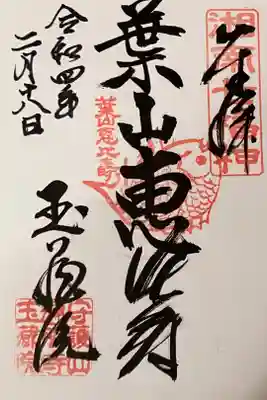 奉拝
葉山恵比寿
玉蔵院
令和四年
二月十八日
湘南七福神
葉山恵比寿
守護山
玉蔵院